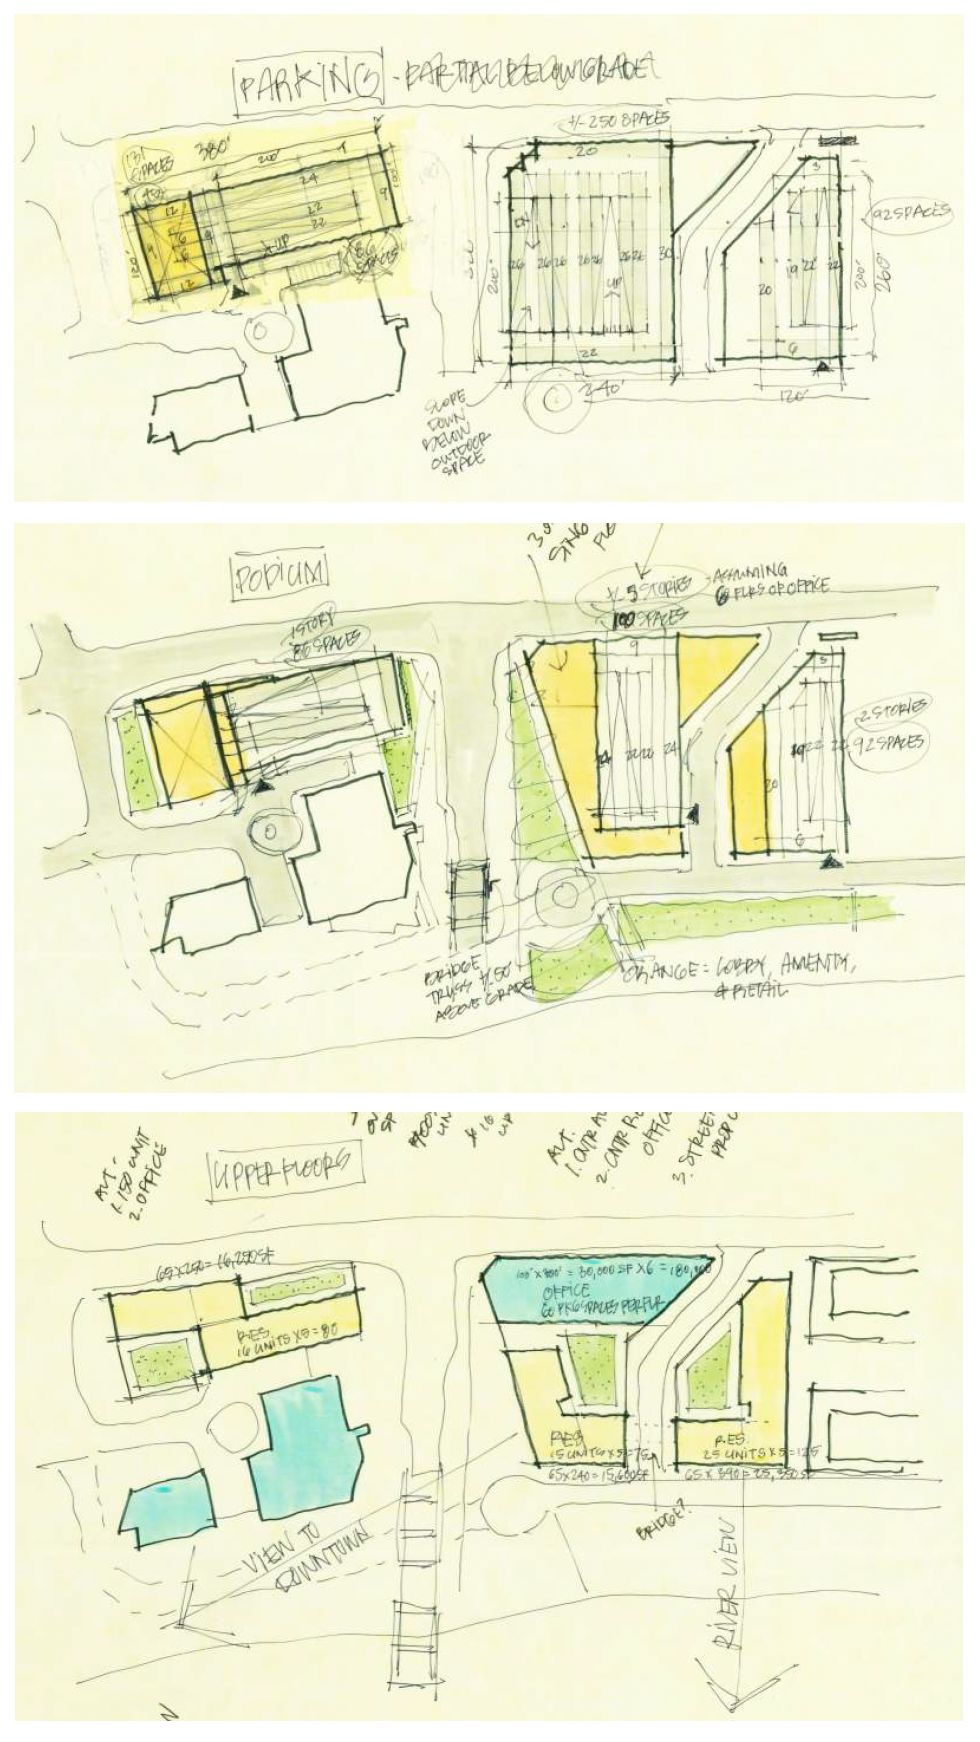 PARKING - PARTIALLY BELOW GRADE
+/- 250 SPACES
131
SPACES
380'
200'
20
3
24
92 SPACES
12
9
22
22
9
UP
86
SPACES
12
26
26 26
26 26
26 26
30
20
19
22
22
200'
200'
260'
UP
22
6
240'
120'
SLOPE
DOWN
BELOW
OUTDOOR
SPACE
PODIUM
+/- 5 STORIES
100 SPACES
- ASSUMING
6 FLRS OF OFFICE
1 STORY
86 SPACES
9
3
2 STORIES
92 SPACES
24
22 22
24
19
22
22
20
6
BRIDGE
TRUSS +/- 50'
ABOVE GRADE
ORANGE = LOBBY, AMENITY,
& RETAIL
ALT -
1. 150 UNIT
2. OFFICE
UPPER FLOORS
ALT.
OFFICE
3. STREET
65 X 250 = 16,250 SF
RES.
16 UNITS X 5 = 80
100' X 300' = 30,000 SF X 6 = 180,000
OFFICE
60 PKG SPACES PER FLR
RES
15 UNITS X 5 = 75
65 X 240 = 15,600 SF
RES.
25 UNITS X 5 = 125
65 X 390 = 25,350 SF
BRIDGE?
VIEW TO
DOWNTOWN
RIVER VIEW